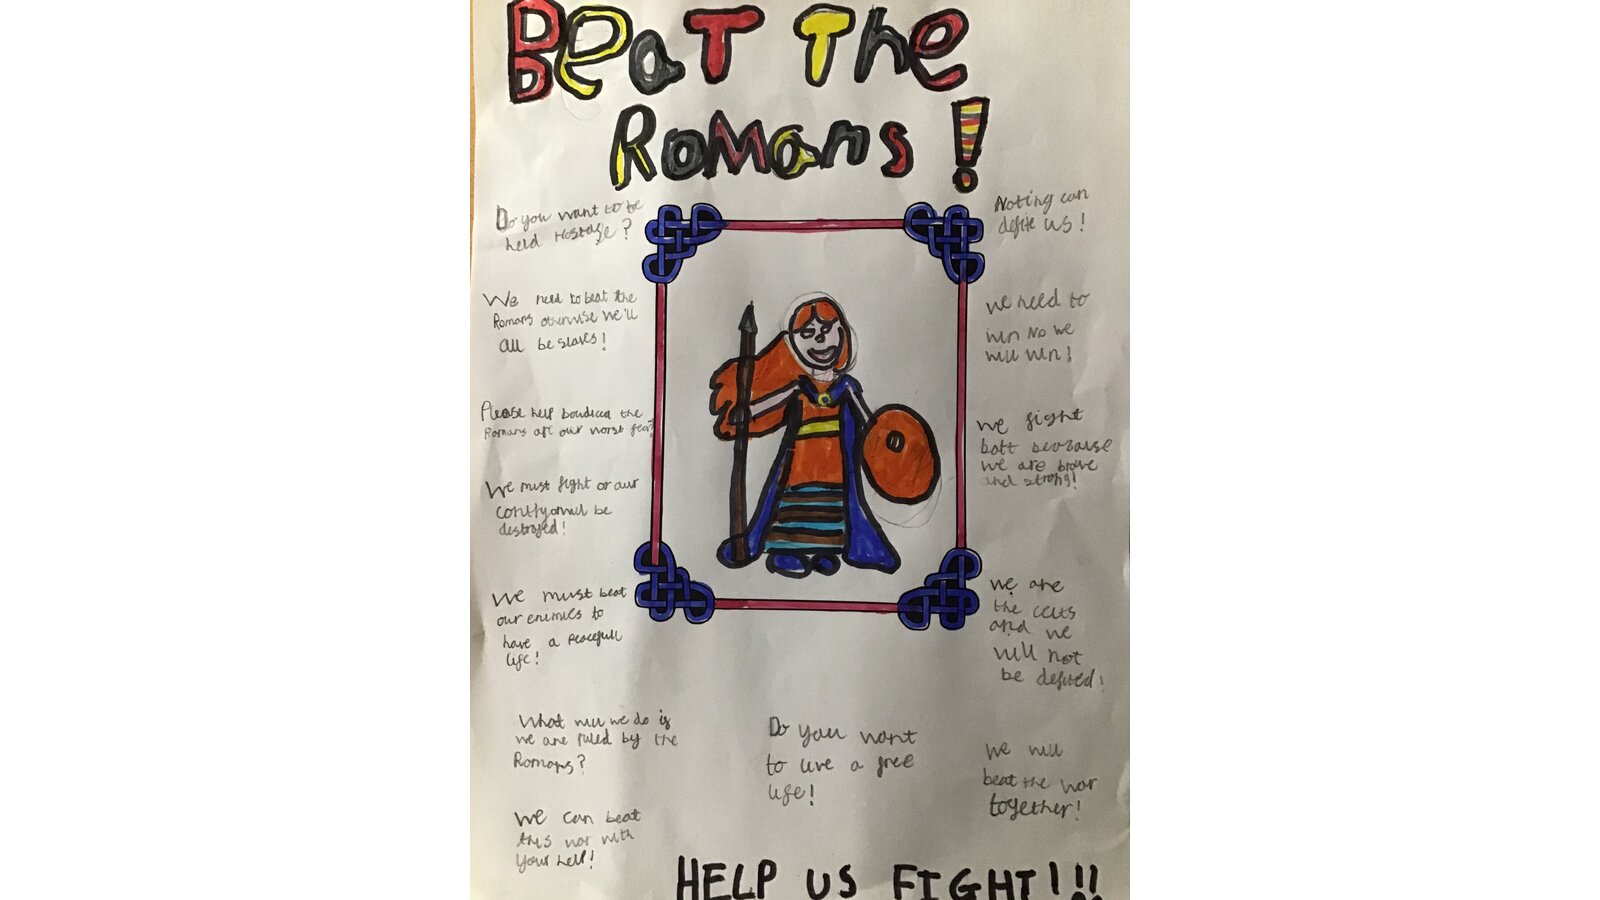 Beat The
Romans!
Do you want to be
held Hostage?
We need to beat the
Romans otherwise we'll
all be slaves!
Please help boudica the
Romans are our worst fear!
We must fight or our
will be
destroyed!
We must beat
our enemies to
have a peacefull
life!
What will we do if
we are ruled by the
Romans?
We can beat
this war with
your help!
Noting can
defite us!
we need to
win No we
will win!
we fight
batt because
we are brave
and strong!
we are
the celts
and we
will not
be defited!
Do you want
to live a free
life!
we will
beat the war
together!
HELP US FIGHT!!!